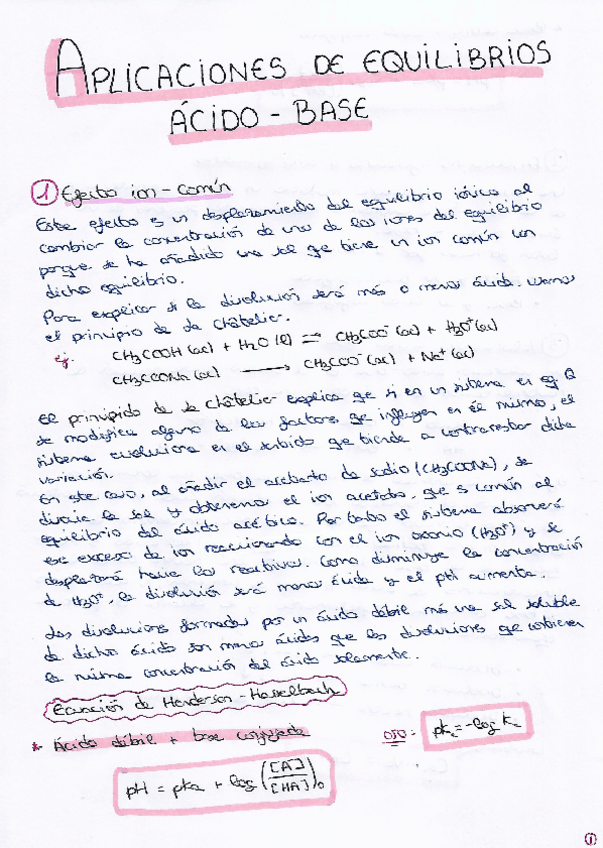 APLICACIONES DE EQUILIBRIOS
ÁCIDO - BASE
1 Efecto ion-común
Este efecto es un desplazamiento del equilibrio iónico al
cambiar la concentración de uno de los iones del equilibrio
porque se ha añadido una sal qe tiene un ion común con
dicho equilibrio.
Para explicar si la disolución será más o menos ácida, usamos
el principio de Le Châtelier.
ej: CH3COOH (ac) + H2O (l) ⇌ CH3COO⁻ (ac) + H3O⁺ (ac)
CH3COONa (ac) → CH3COO⁻ (ac) + Na⁺ (ac)
El principido de Le Châtelier explica qe si en un sistema en eq Q
se modifica alguno de los factores qe influyen en él mismo, el
sistema evoluciona en el sentido qe tiende a contrarrestar dicha
variación.
En este caso, al añadir el acetato de sodio (CH3COONa), se
disocia la sal y obtenemos el ion acetato, qe es común al
equilibrio del ácido acético. Por tanto el sistema absorverá
ese exceso de ion reaccionando con el ion oxonio (H3O⁺) y se
desplazará hacia los reactivos. Como disminuye la concentración
de H3O⁺, la disolución será menos ácida y el pH aumenta.
Las disoluciones formadas por un ácido débil más una sal soluble
de dicho ácido son menos ácidas que las disoluciones qe contienen
la misma concentración del ácido solamente.
Ecuación de Henderson-Hasselbach
* Ácido débil + base conjugada OJO: pKa = -log Ka
pH = pKa + log ([A⁻]/[HA])₀
1